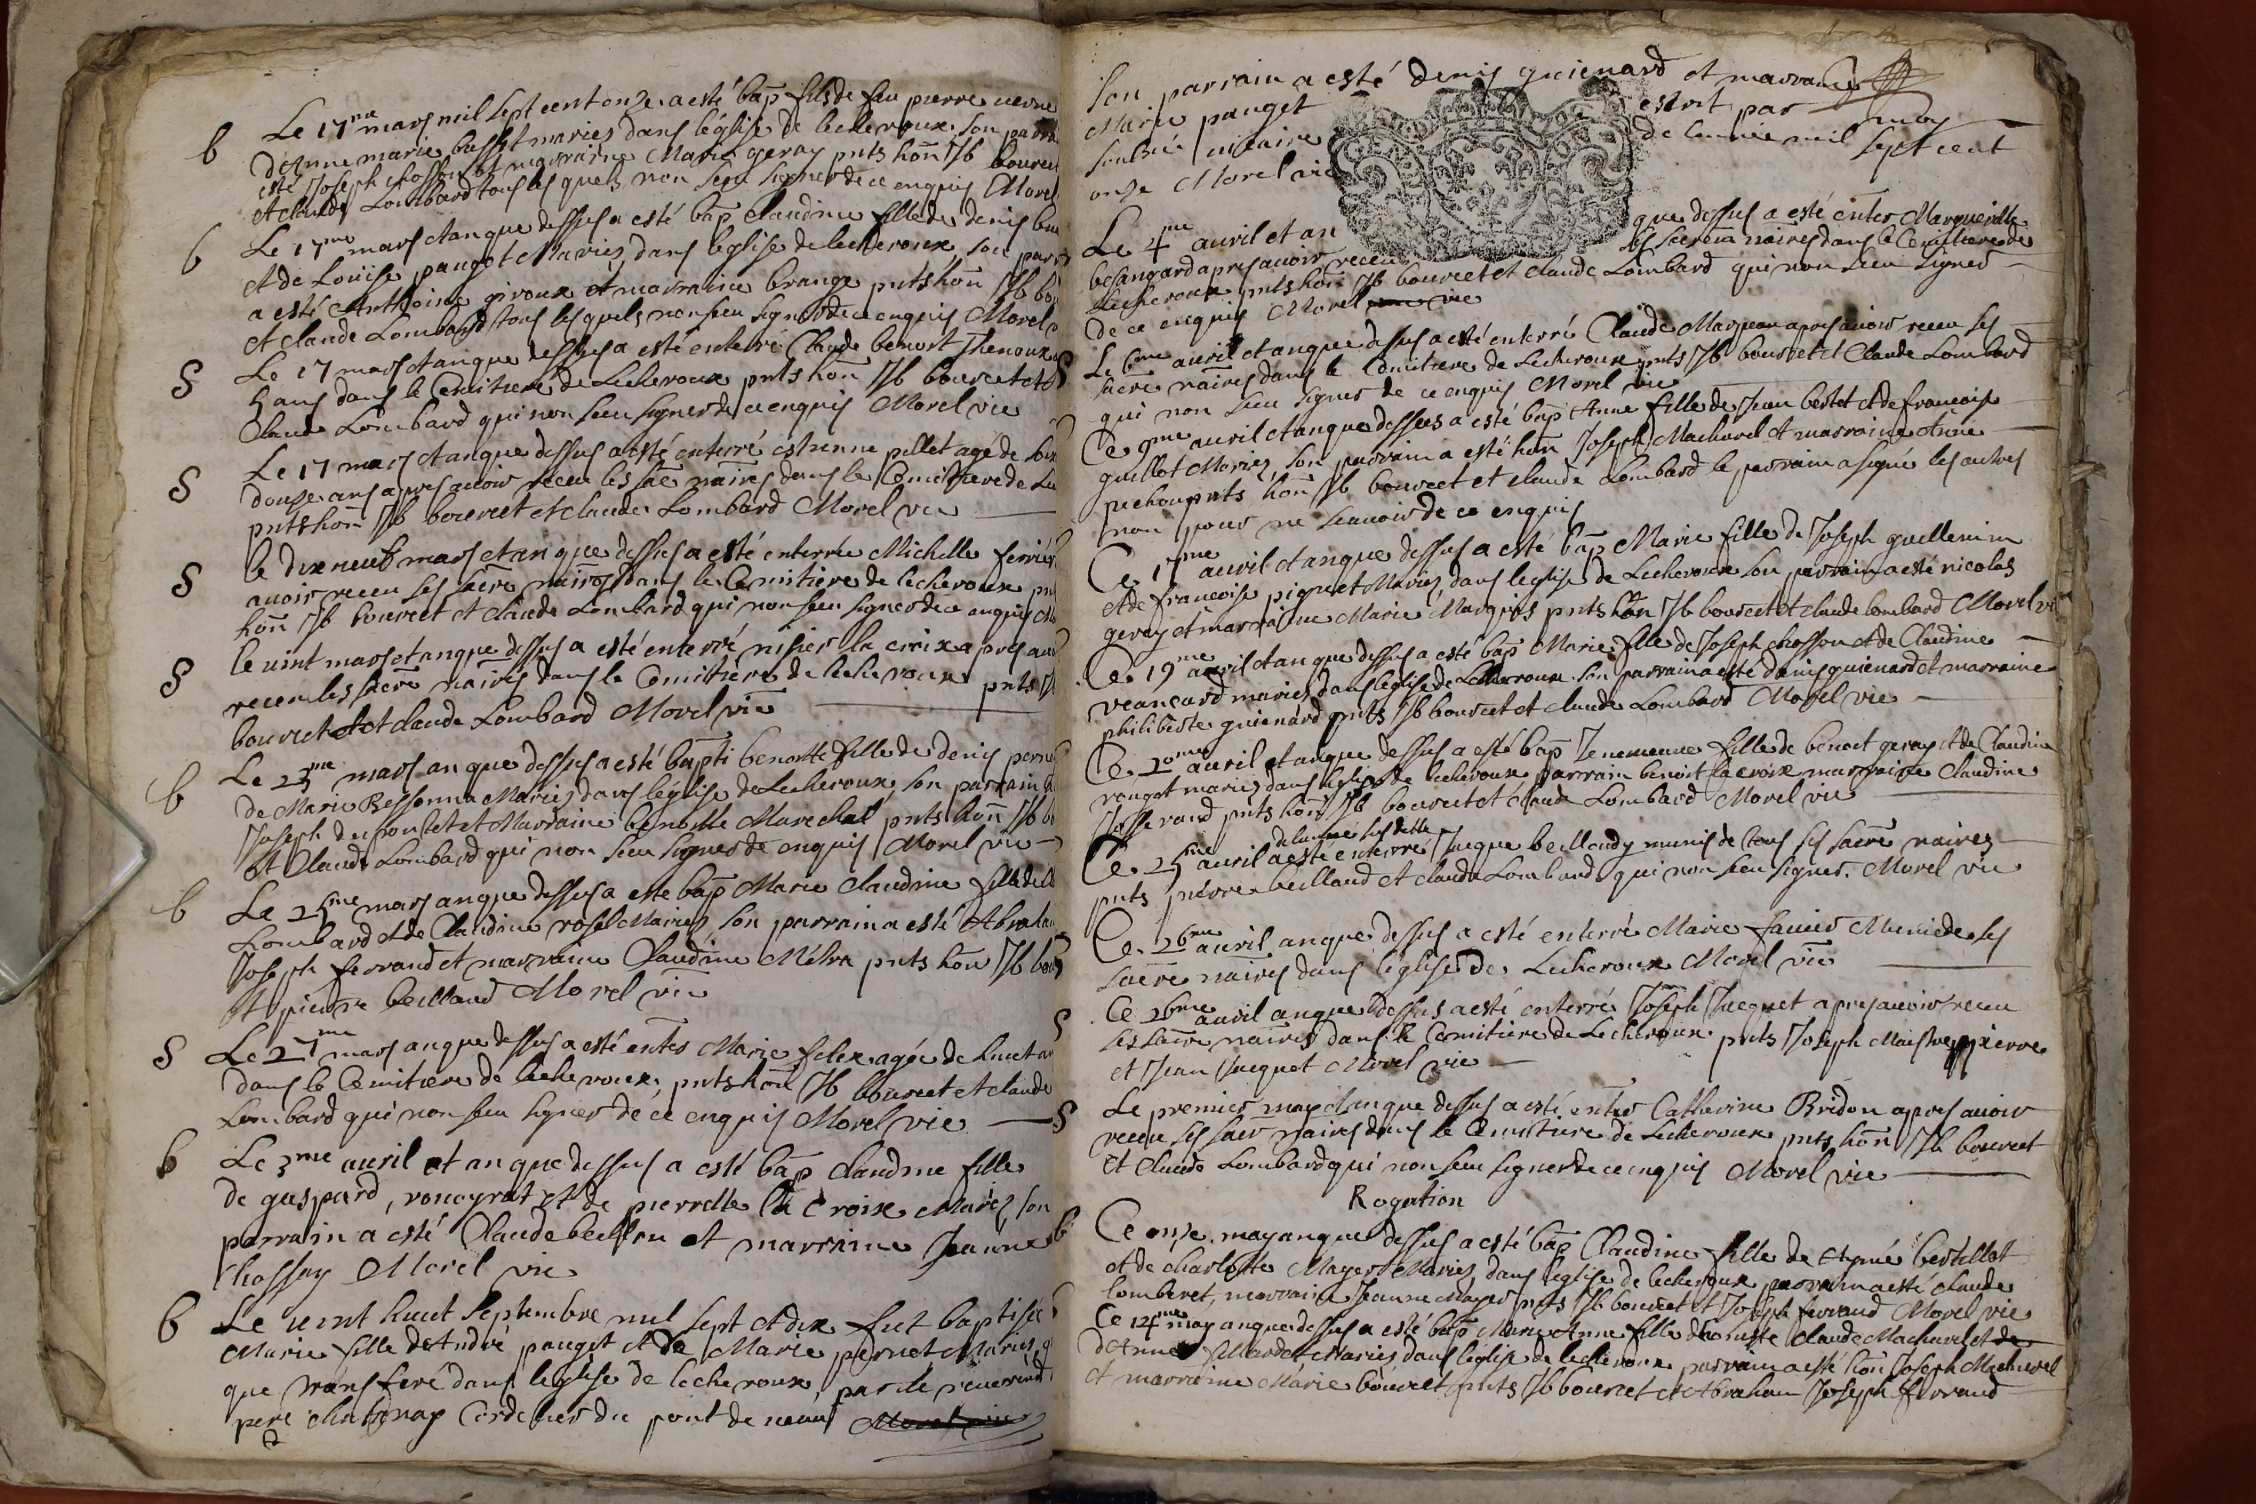 b Le 17me mars mil sept cent onze a esté bap fils de feu pierre
d'Anne marie basset mariez dans léglise de lecheroux son parrain
esté Joseph chosson et marraine Marie geray pnts hon Jb bourcet
et claude Lombard tous les quels non seu signer de ce enquis Morel
b Le 17me mars et an que dessus a esté bap claudine fille de denis
et de Louise pauget Mariez dans leglise de lecheroux son parr
a esté Anthoine giroux et marraine brange pnts hon Jb
et claude Lombard tous les quels non seu signer de ce enquis Morel
S Le 17 mars et an que dessus a esté enterré Claude benoit Thenoux
5 ans dans le Cemitiere de Lecheroux pnts hon Jb bourcet et
Claude Lombard qui non seu signer de ce enquis Morel vic
S Le 17 mars et an que dessus a esté enterré estienne pillet agé de
douze ans apres avoir receu les sac naires dans le Cemitiere de Le
pnts hon Jb bourcet et claude Lombard Morel vic
S le dixneuf mars et an que dessus a esté enterrée Michelle ferrier
avoir receu ses sacre naires dans le Cemitiere de lecheroux
hon Jb bourcet et claude Lombard qui non seu signer de ce enquis
S le vint mars et an que dessus a esté enterré nisier la croix apres
receu les sacre naires dans le Cemitiere de lecheroux pnts
bourcet et claude Lombard Morel vic
b Le 23me mars an que dessus a esté bapti benoitte fille de denis
de Marie Ressonna Mariez dans léglise de Lecheroux son parrain
Joseph et Marraine benoitte Marechal pnts hon Jb
et Claude Lombard qui non seu signer de enquis Morel vic
b Le 25me mars an que dessus a este bap Marie Claudine fille de
Lombard et de Claudine rosel Mariez son parrain a esté Abraham
Joseph ferrand et marraine Claudine Métra pnts hon Jb
et pierre beilland Morel vic
S Le 27me mars an que dessus a esté enter Marie felix agée de huit
dans le Cemitiere de lecheroux pnts hon Jb bourcet et claude
Lombard qui non seu signer de ce enquis Morel vic
b Le 3me auril et an que dessus a esté bap claudine fille
de gaspard, roncyrat et de pierrette la Croix Mariez son
parrain a esté Claude et marraine Jeanne
Chossay Morel vic
b Le vint huict septembre mil sept et dix fut baptisée
Marie fille d'André pauget et de Marie pernet Mariez
que transferé dans leglise de lecheroux par le reuerend
pere chatenay Cordelier du pont de
Son parrain a esté denis guienard et marraine
Marie pauget estrit par moy
soubsé vicaire de lannée mil sept cent
onze Morel vic
Le 4me auril et an que dessus a esté enter Margueritte
besançard apres auoir receu les sacrem naires dans le Cemitiere de
Lecheroux pnts hon Jb bourcet et claude Lombard qui non seu signer
de ce enquis Morel vic
S Le 6me auril et an que dessus a esté enterré Claude Mazuean apres auoir receu ses
sacre naires dans le Cemitiere de Lecheroux pnts Jb bourcet et Claude Lombard
qui non seu signer de ce enquis Morel vic
Ce 9me auril et an que dessus a esté bap Anne fille de Jean bertet et de francoise
guillot Mariez, son parrain a esté hon Joseph Machurel et marraine Anne
pichon pnts hon Jb bourcet et claude Lombard le parrain a signé les autres
non pour ne scauoir de ce enquis
Ce 17me auril et an que dessus a esté bap Marie fille de Joseph guillemin
et de francoise piquet Mariez dans leglise de Lecheroux son parrain a esté nicolas
geray et marraine Marie Marquis pnts hon Jb bourcet et claude lombard Morel vi
Ce 19me auril et an que dessus a esté bap Marie fille de Joseph chosson et de Claudine
veancard mariez dans leglise de Lecheroux son parrain a esté denis guienard et marraine
philiberte guienard pnts Jb bourcet et claude Lombard Morel vic
Ce 20me auril et an que dessus a esté bap fille de benoit geray et de Claudine
rouget mariez dans leglise de lecheroux parrain benoit la croix marraine Claudine
Josserand pnts hon Jb bourcet et claude Lombard Morel vic
de lannée susdite
Ce 25me auril a esté enterré Jacque beillandy munis de tous ses sacre naires
pnts pierre beilland et claude Lombard qui non seu signer. Morel vic
Ce 26me auril an que dessus a esté enterré Marie fauier Munie de ses
sacre naires dans léglise de Lecheroux Morel vic
S Ce 26me auril an que dessus a esté enterré Joseph Jacquet apres auoir receu
ses sacre naires dans le Cemitiere de Lecheroux pnts Joseph Maistre pierre
et Jean Jacquet Morel vic
S Le premier may et an que dessus a esté enter Catherine Bridon apres auoir
receu ses sacr naires dans le Cemitiere de Lecheroux pnts hon Jb bourcet
et Claude Lombard qui non seu signer de ce enquis Morel vic
Rogation
b Ce onze may an que dessus a esté bap Claudine fille de Aymé bertillot
et de charlotte Mayer Mariez dans leglise de lecheroux parrain a esté claude
lomberet, marraine Jeanne mayer pnts Jb bourcet et Joseph ferrand Morel vic
Ce 12me may an que dessus a esté bap Marie Anne fille dhoneste claude Machurel et de
d'Anne Mariez dans leglise de lecheroux parrain a esté hon Joseph Machurel
et marraine Marie bourcet pnts Jb bourcet et Abraham Joseph ferrand